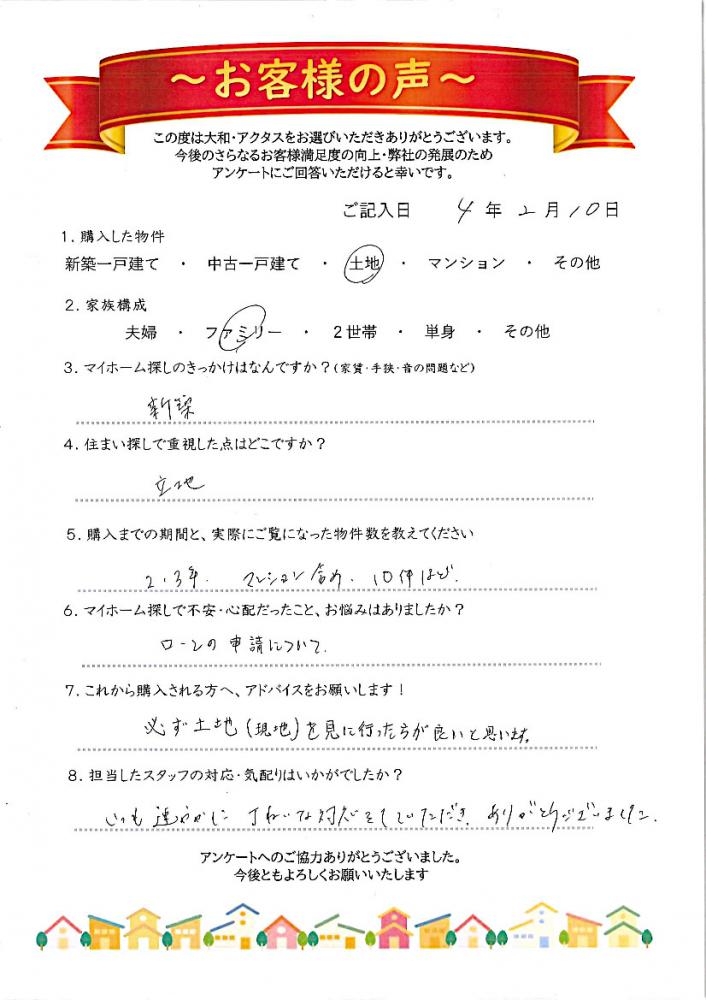 ～お客様の声～
この度は大和・アクタスをお選びいただきありがとうございます。
今後のさらなるお客様満足度の向上・弊社の発展のため
アンケートにご回答いただけると幸いです。
ご記入日 4年2月10日
1．購入した物件
新築一戸建て ・ 中古一戸建て ・ 土地 ・ マンション ・ その他
2．家族構成
夫婦 ・ ファミリー ・ 2世帯 ・ 単身 ・ その他
3．マイホーム探しのきっかけはなんですか？(家賃・手狭・音の問題など)
新築
4．住まい探しで重視した点はどこですか？
立地
5．購入までの期間と、実際にご覧になった物件数を教えてください
2.3年. マンション含め. 10件ほど.
6．マイホーム探しで不安・心配だったこと、お悩みはありましたか？
ローンの申請について.
7．これから購入される方へ、アドバイスをお願いします！
必ず土地(現地)を見に行ったらが良いと思います。
8．担当したスタッフの対応・気配りはいかがでしたか？
いつも速やかに丁ねいな対応をしていただき、ありがとうございました.
アンケートへのご協力ありがとうございました。
今後ともよろしくお願いいたします